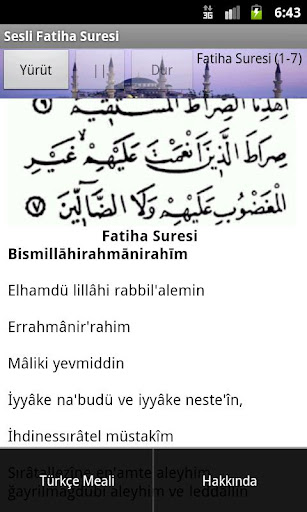 3G 6:43
Sesli Fatiha Suresi
Yürüt || Dur Fatiha Suresi (1-7)
اِهْدِنَا الصِّرَاطَ الْمُسْتَقِيمَ
صِرَاطَ الَّذِينَ اَنْعَمْتَ عَلَيْهِمْ غَيْرِ
الْمَغْضُوبِ عَلَيْهِمْ وَلَا الضَّالِّينَ ٧
Fatiha Suresi
Bismillâhirahmânirahîm
Elhamdü lillâhi rabbil'alemin
Errahmânir'rahim
Mâliki yevmiddin
İyyâke na'budü ve iyyâke neste'în,
İhdinessırâtel müstakîm
Sırâtallezîne enlamte aleyhim
ğayrilmağdûbi aleyhim ve leddâllîn
Türkçe Meali Hakkında